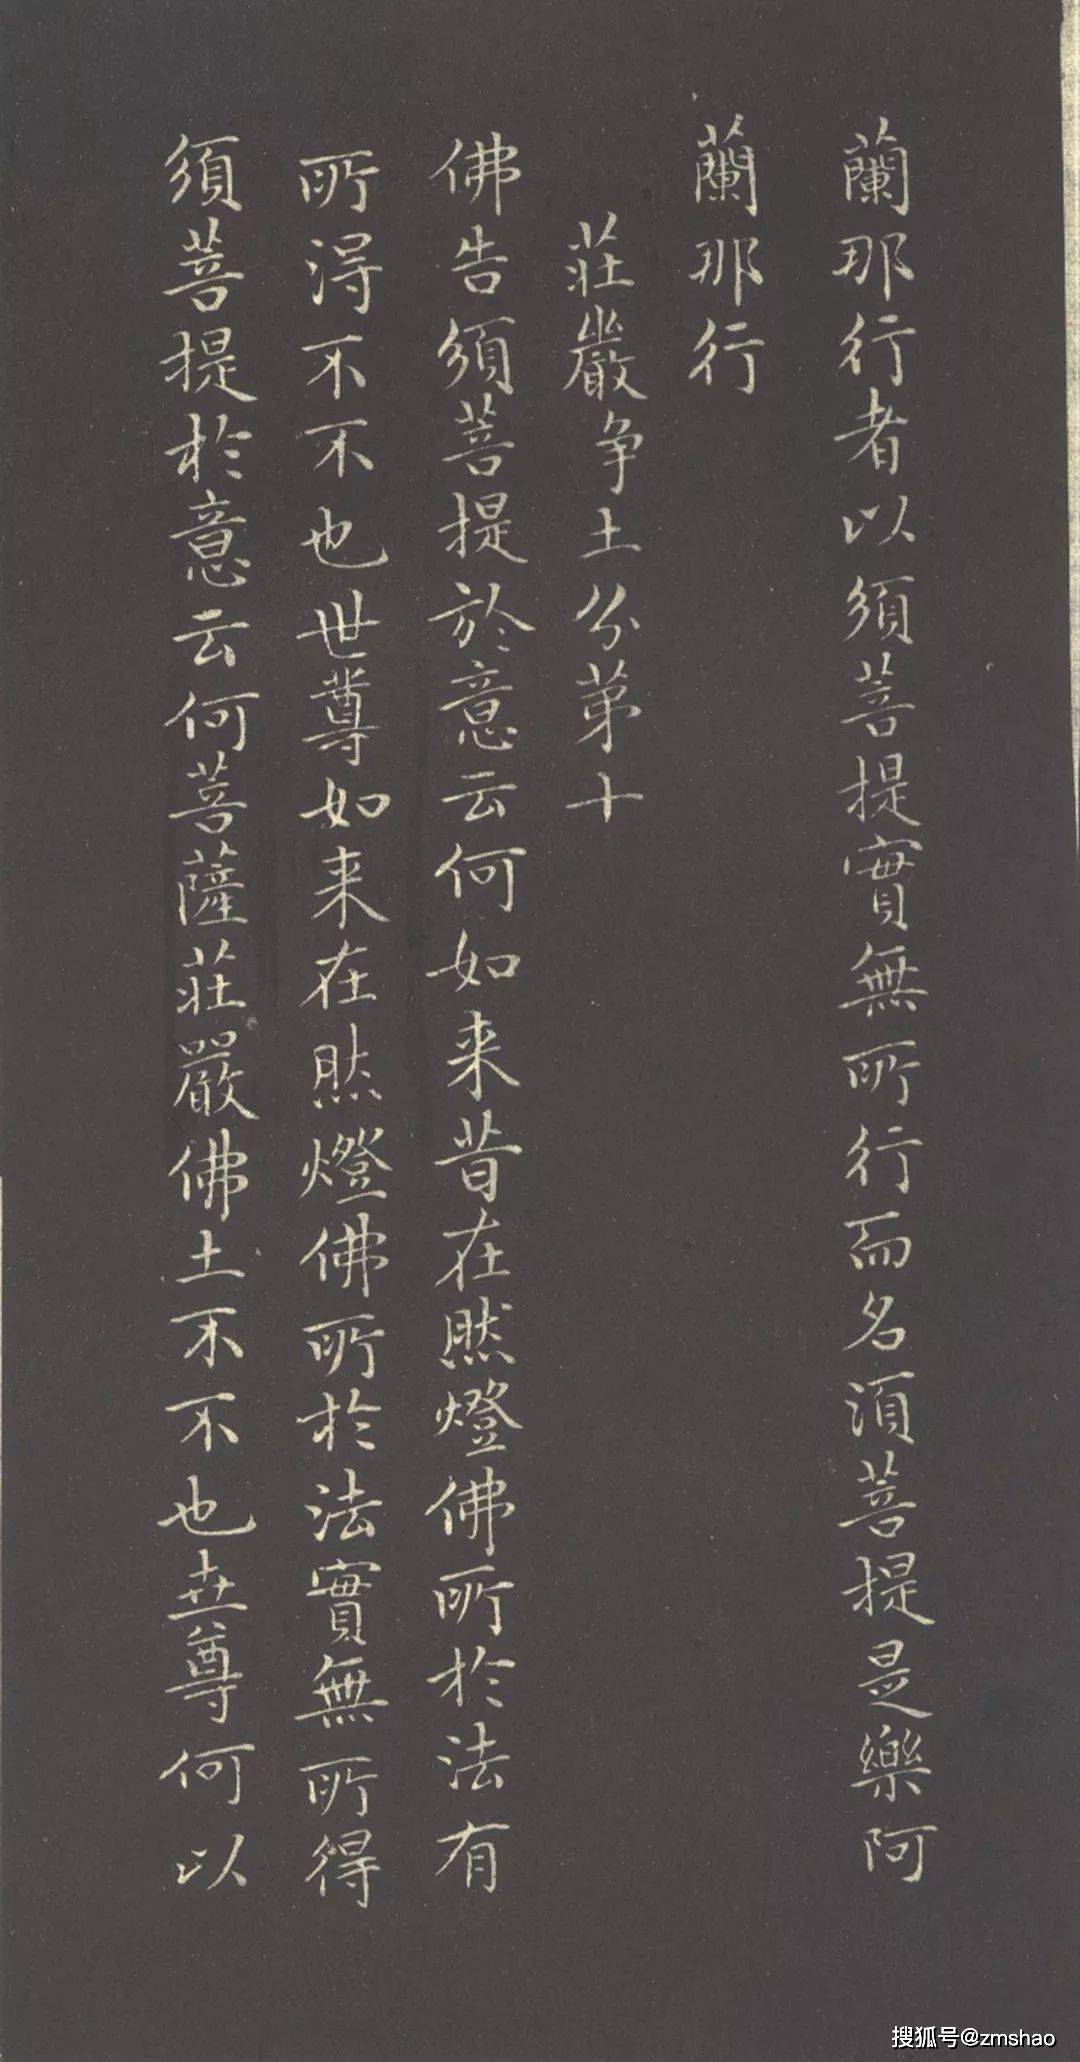 蘭那行者以須菩提實無所行而名須菩提是樂阿
蘭那行
莊嚴爭土分第十
佛告須菩提於意云何如来昔在然燈佛所於法有
所得不不也世尊如来在然燈佛所於法實無所得
須菩提於意云何菩薩莊嚴佛土不不也世尊何以
搜狐号@zmshao